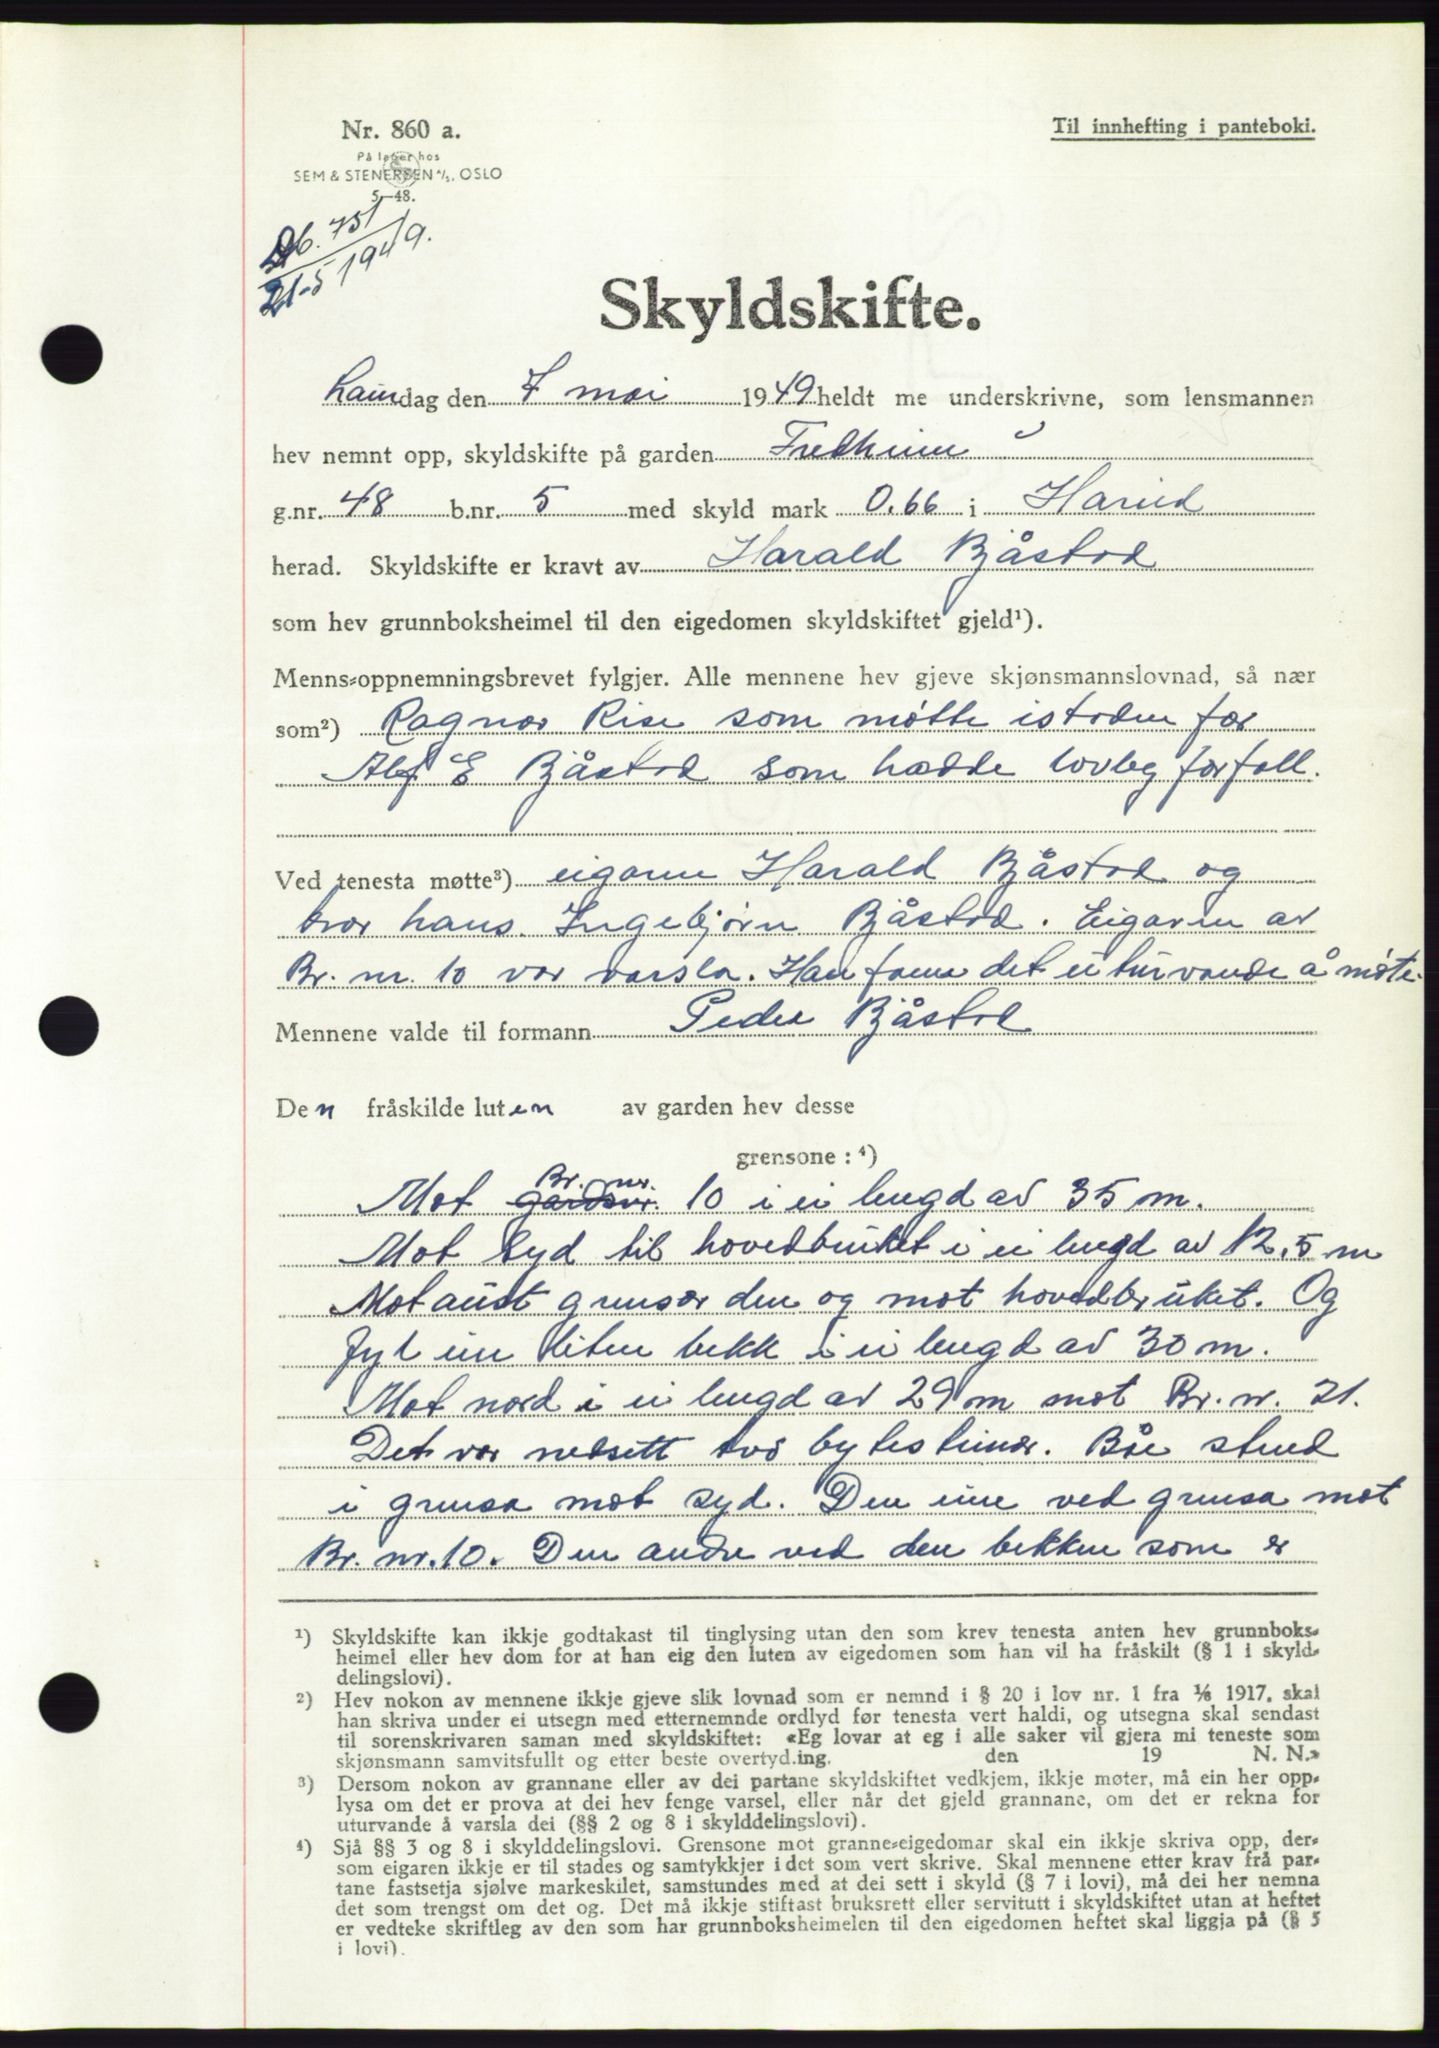 Nr. 860 a.
På lager hos
SEM & STENERSEN A/S, OSLO
5—48.
Til innhefting i panteboki.
Db. 751
21-5 1949.
Skyldskifte.
Laurdag den 7 mai 1949 heldt me underskrivne, som lensmannen
hev nemnt opp, skyldskifte på garden Fredheim
g.nr. 48 b.nr. 5 med skyld mark 0.66 i Hareid
herad. Skyldskifte er kravt av Harald Bjåstad
som hev grunnboksheimel til den eigedomen skyldskiftet gjeld¹).
Menns-oppnemningsbrevet fylgjer. Alle mennene hev gjeve skjønsmannslovnad, så nær
som²) Ragnar Rise som møtte istaden for
Alf E Bjåstad som hadde lovleg forfall.
Ved tenesta møtte³) eigaren Harald Bjåstad og
bror hans. Ingebjørn Bjåstad. Eigaren av
Br. nr. 10 var varsla. Han fann det uturvande å møte.
Mennene valde til formann Peder Bjåstad
Den fråskilde luten av garden hev desse
grensone: ⁴)
Br. nr.
Mot gardsnr. 10 i ei lengd av 35 m.
Mot Syd til hovedbruket i ei lengd av 12,5 m
Mot aust grensar den og mot hovedbruket. Og
fyl ein liten bekk i ei lengd av 30 m.
Mot nord i ei lengd av 29 m mot Br. nr. 21.
Det var nedsett två bytesteinar. Båe stend
i grensa mot syd. Den eine ved grensa mot
Br. nr. 10. Den andre ved den bekken som er
¹) Skyldskifte kan ikkje godtakast til tinglysing utan den som krev tenesta anten hev grunnboks-
heimel eller hev dom for at han eig den luten av eigedomen som han vil ha fråskilt (§ 1 i skyld-
delingslovi).
²) Hev nokon av mennene ikkje gjeve slik lovnad som er nemnd i § 20 i lov nr. 1 fra 1/6 1917, skal
han skriva under ei utsegn med etternemnde ordlyd før tenesta vert haldi, og utsegna skal sendast
til sorenskrivaren saman med skyldskiftet: «Eg lovar at eg i alle saker vil gjera mi teneste som
skjønsmann samvitsfullt og etter beste overtyd.ing. den 19 N. N.»
³) Dersom nokon av grannane eller av dei partane skyldskiftet vedkjem, ikkje møter, må ein her opp-
lysa om det er prova at dei hev fenge varsel, eller når det gjeld grannane, om det er rekna for
uturvande å varsla dei (§§ 2 og 8 i skylddelingslovi).
⁴) Sjå §§ 3 og 8 i skylddelingslovi. Grensone mot granne-eigedomar skal ein ikkje skriva opp, der-
som eigaren ikkje er til stades og samtykkjer i det som vert skrive. Skal mennene etter krav frå par-
tane fastsetja sjølve markeskilet, samstundes med at dei sett i skyld (§ 7 i lovi), må dei her nemna
det som trengst om det og. Det må ikkje stiftast bruksrett eller servitutt i skyldskiftet utan at heftet
er vedteke skriftleg av den som har grunnboksheimelen til den eigedomen heftet skal liggja på (§ 5
i lovi).